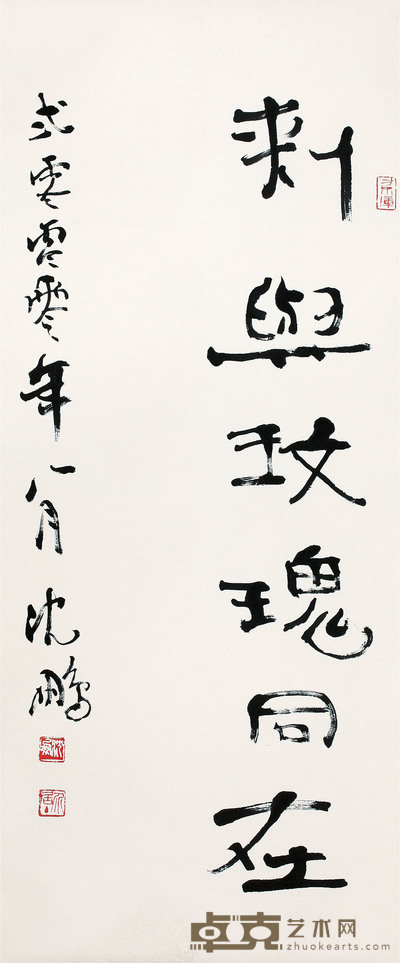 刺與玫瑰同在
弍零零零年八月沈鵬
卓克艺术网
zhuokearts.com